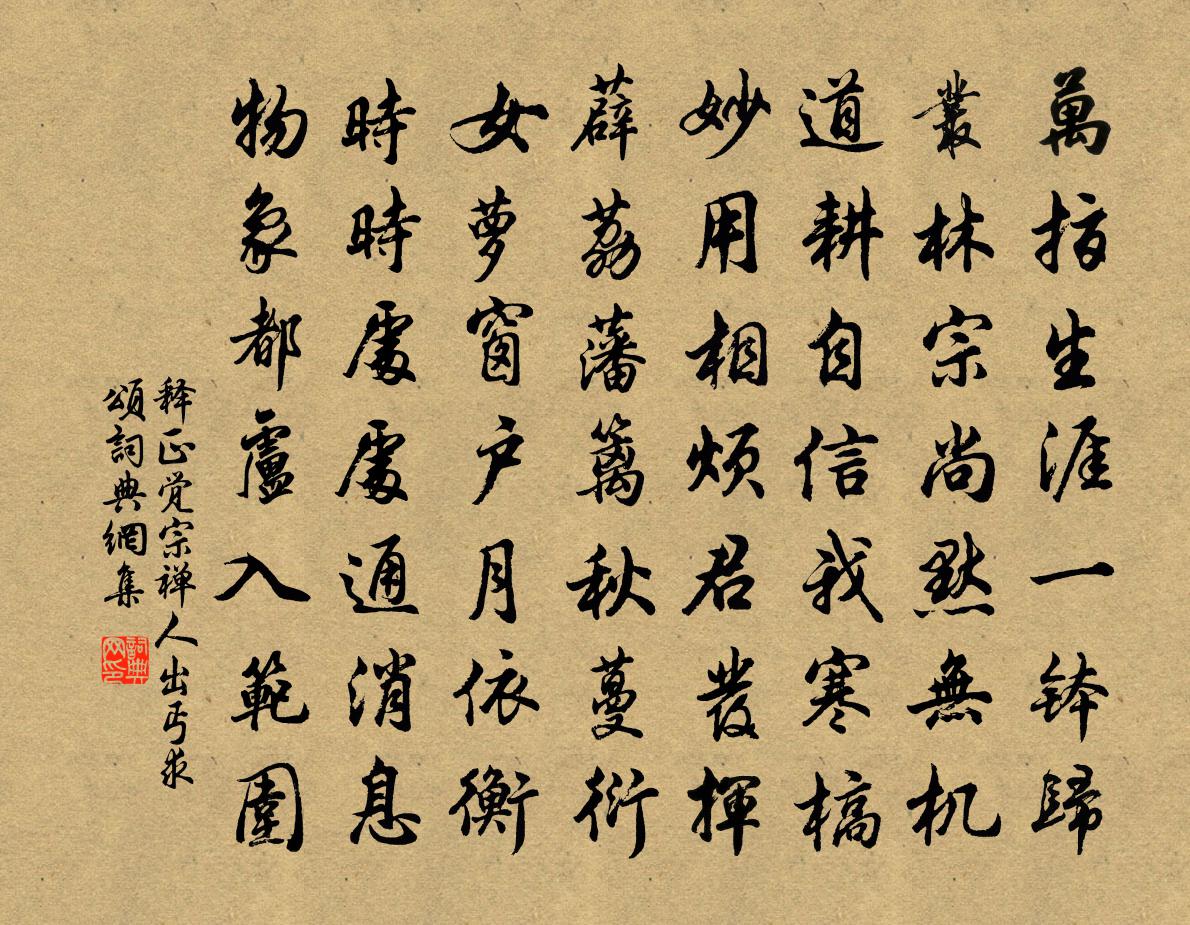 萬指生涯一缽歸
叢林宗尚默無机
道耕自信我寒槁
妙用相煩君發揮
薜荔藩籬秋蔓衍
女萝窗户月依衡
時時處處通消息
物象都盧入範圍
释正觉宗禅人出丐求
頌詞典網集
詞典网印